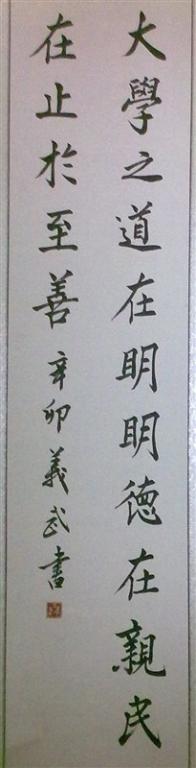 大學之道在明明德在親民
在止於至善 辛卯 義武書